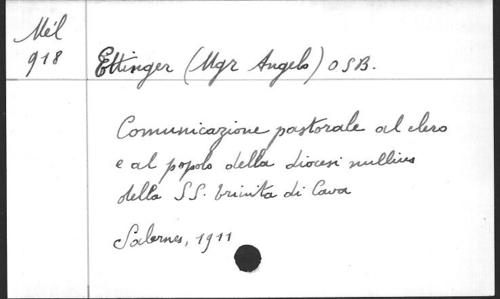 Mél
918
Ettinger (Mgr Angelo) OSB.
Comunicazione pastorale al clero
e al popolo della diocesi nullius
della SS. trinita di Cava
Salernes, 1911